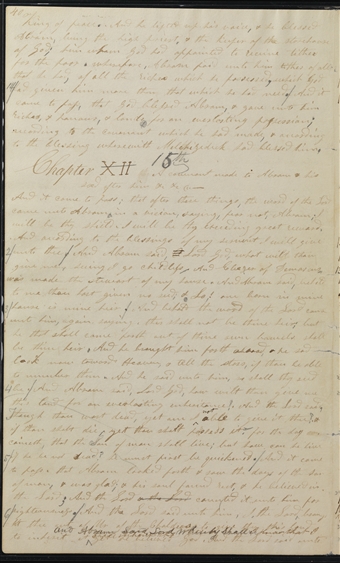 King of peace. And he lifted up his voice, & he blessed
Abram, being the high priest, & the keeper of the storehouse
of God; him whom God had appointed to receive tithes
for the poor. wherefore, Abram paid unto him tithes of all
that he had, of all the riches which he possessed, which God
had given him more than that which he had need. And it
came to pass, that God blessed Abram, & gave unto him
riches, & honors, & lands for an everlasting possession;
according to the covenant which he had made, & according
to the blessing wherewith Melchizedek had blessed him.
15th
Chapter XII A covenant made to Abram & his
seed after him &c &c
And it came to pass, that after these things, the word of the Lord
came unto Abram in a vision, saying, fear not, Abram; I
will be thy shield; I will be thy exceeding great reward.
And according to the blessings of my servant I will give
unto thee. And Abram said, Lord God, what wilt thou
give me, seeing I go childless, And Eliezer of Damascus
was made the steward of my house. And Abram said, behold
to me thou hast given no seed, & lo, one born in mine
house is mine heir. And behold the word of the Lord came
unto him again, saying, this shall not be thine heir; but
he that shall come forth out of thine own bowels shall
be thine heir. And he brought him forth abroad, & he said
Look now toward Heaven, & tell the stars, if thou be able
to number them. And he said unto him, so shall thy seed
be. And Abram said, Lord God, how wilt thou give me
this land for an everlasting inheritance. And the Lord said,
Though thou wast dead, yet am I not able to give it thee.
if thou shalt die, yet thou shalt possess it for the day
cometh, that the Son of man shall live; but how can he live
if he be not dead? he must first be quickened. And it came
to pass, that Abram looked forth & saw the days of the son
of man, & was glad & his soul found rest, & he believed in
the Lord; And the Lord counted it unto him for
righteousness. And the Lord said unto him, I, the Lord, bring
And Abram said, Lord, Whereby shall I know that I